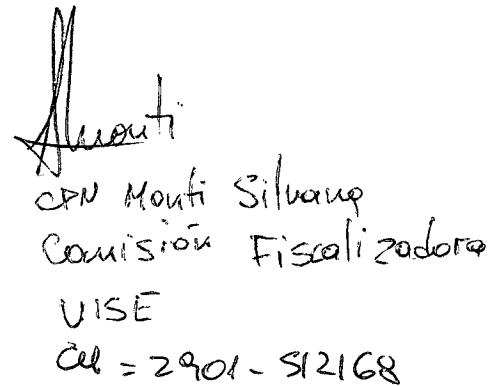 SMonti
CPN Monti Silvana
Comisión Fiscalizadora
VISE
Cel = 2901 - 512168